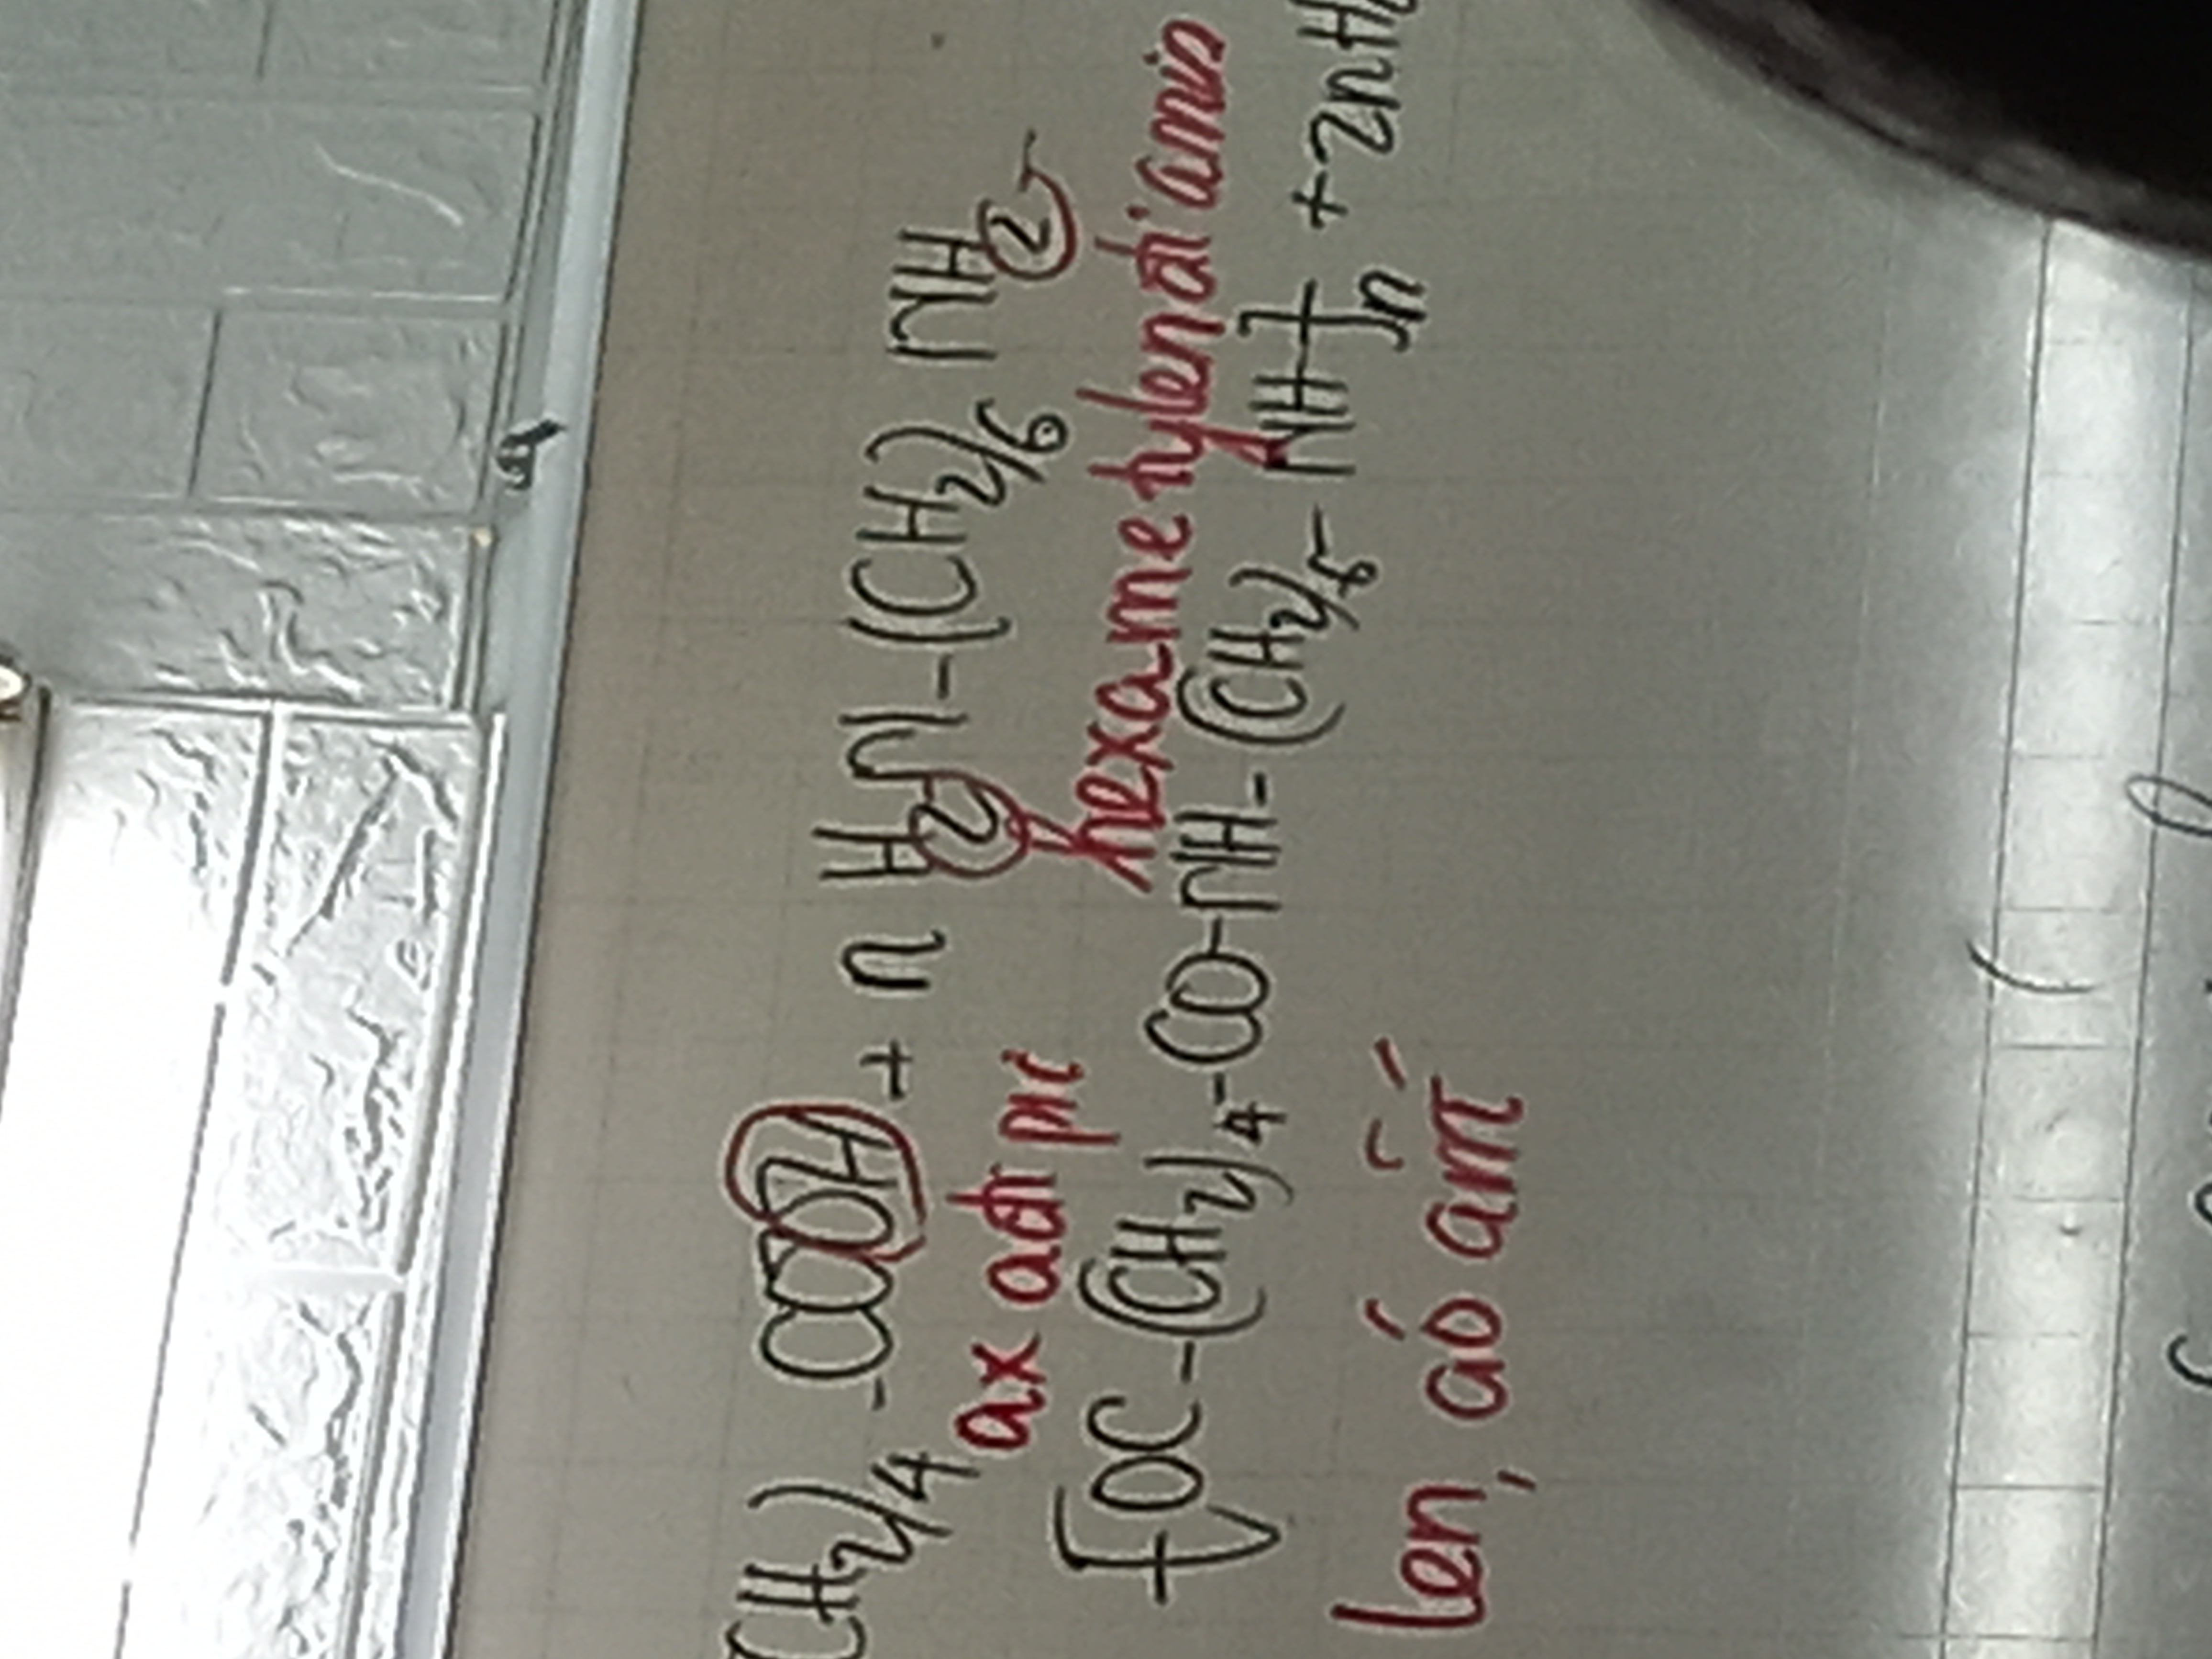 CH₂)₄ -COOH + n H₂N-(CH₂)₆ NH₂
ax adipic
hexametylendiamin
[OC-(CH₂)₄-CO-NH-(CH₂)₆-NH]n + 2nH
len, áo ấm